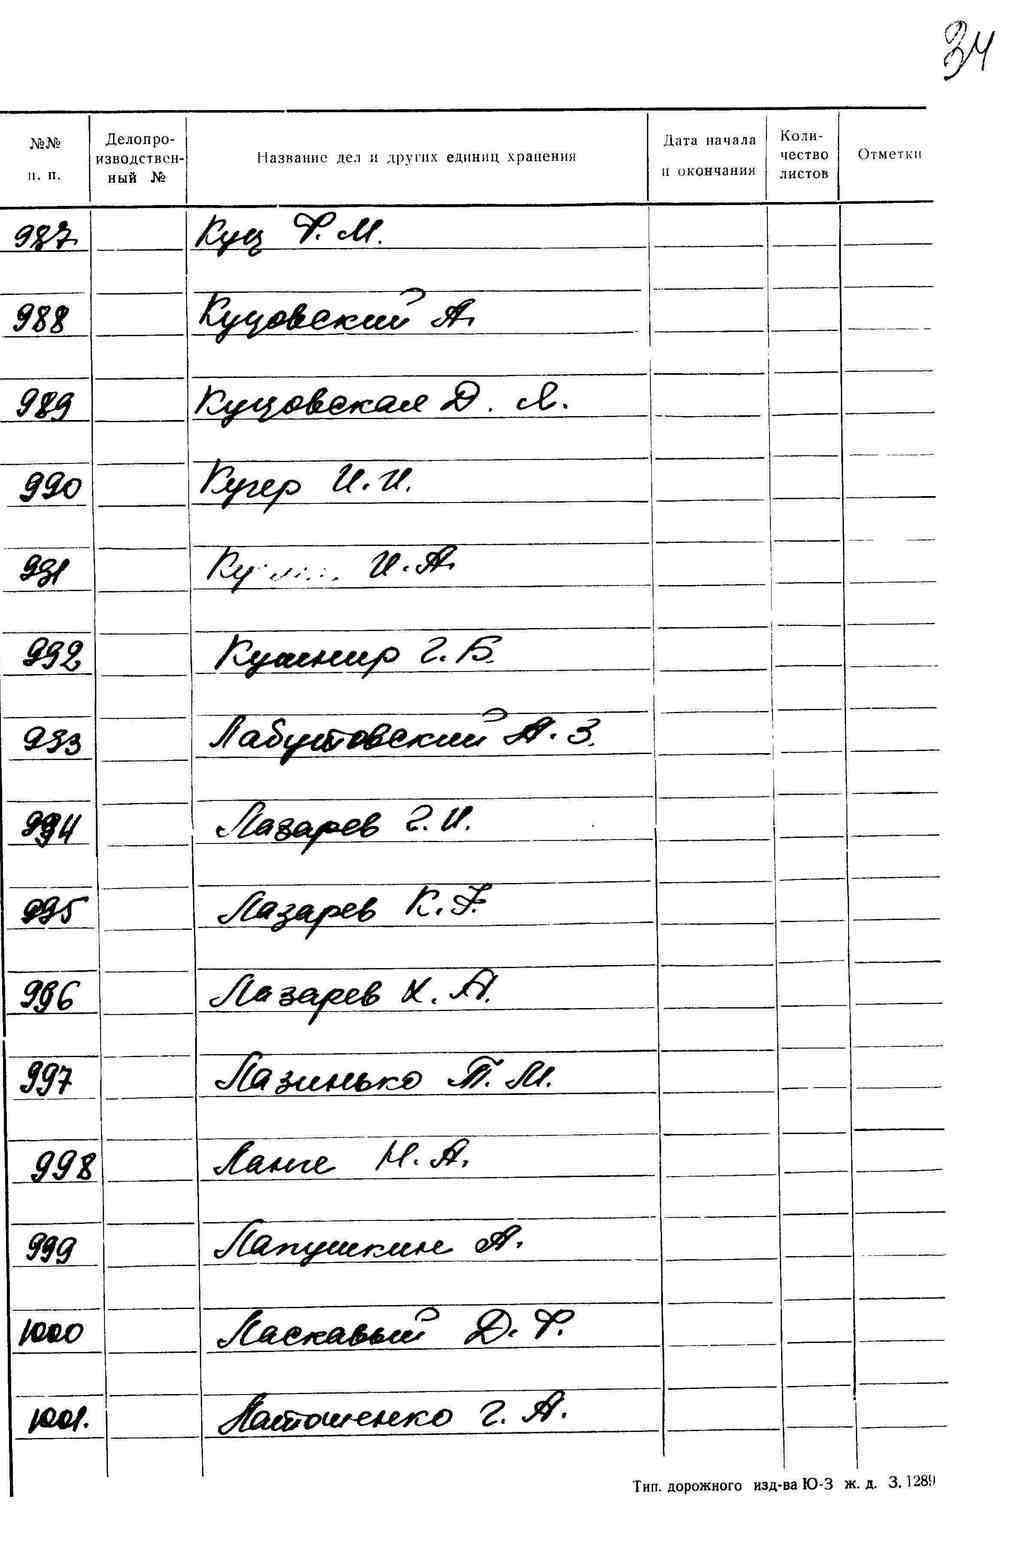 34
№№ п. п.
Делопроизводственный №
Название дел и других единиц хранения
Дата начала и окончания
Количество листов
Отметки
987 Куц Ф. М.
988 Куцовский А.
989 Куцовская Д. Я.
990 Кучер И. И.
991 И. А.
992 Кушнир Г. Б.
993 А. З.
994 Лазарев Г. И.
995 Лазарев К. F.
996 Лазарев Х. А.
997 Лазинько П. М.
998 Ланге Н. А.
999 Лапушкин А.
1000 Ласкавый Д. Ф.
1001. Латошенко Г. А.
Тип. дорожного изд-ва Ю-З ж. д. З. 1289